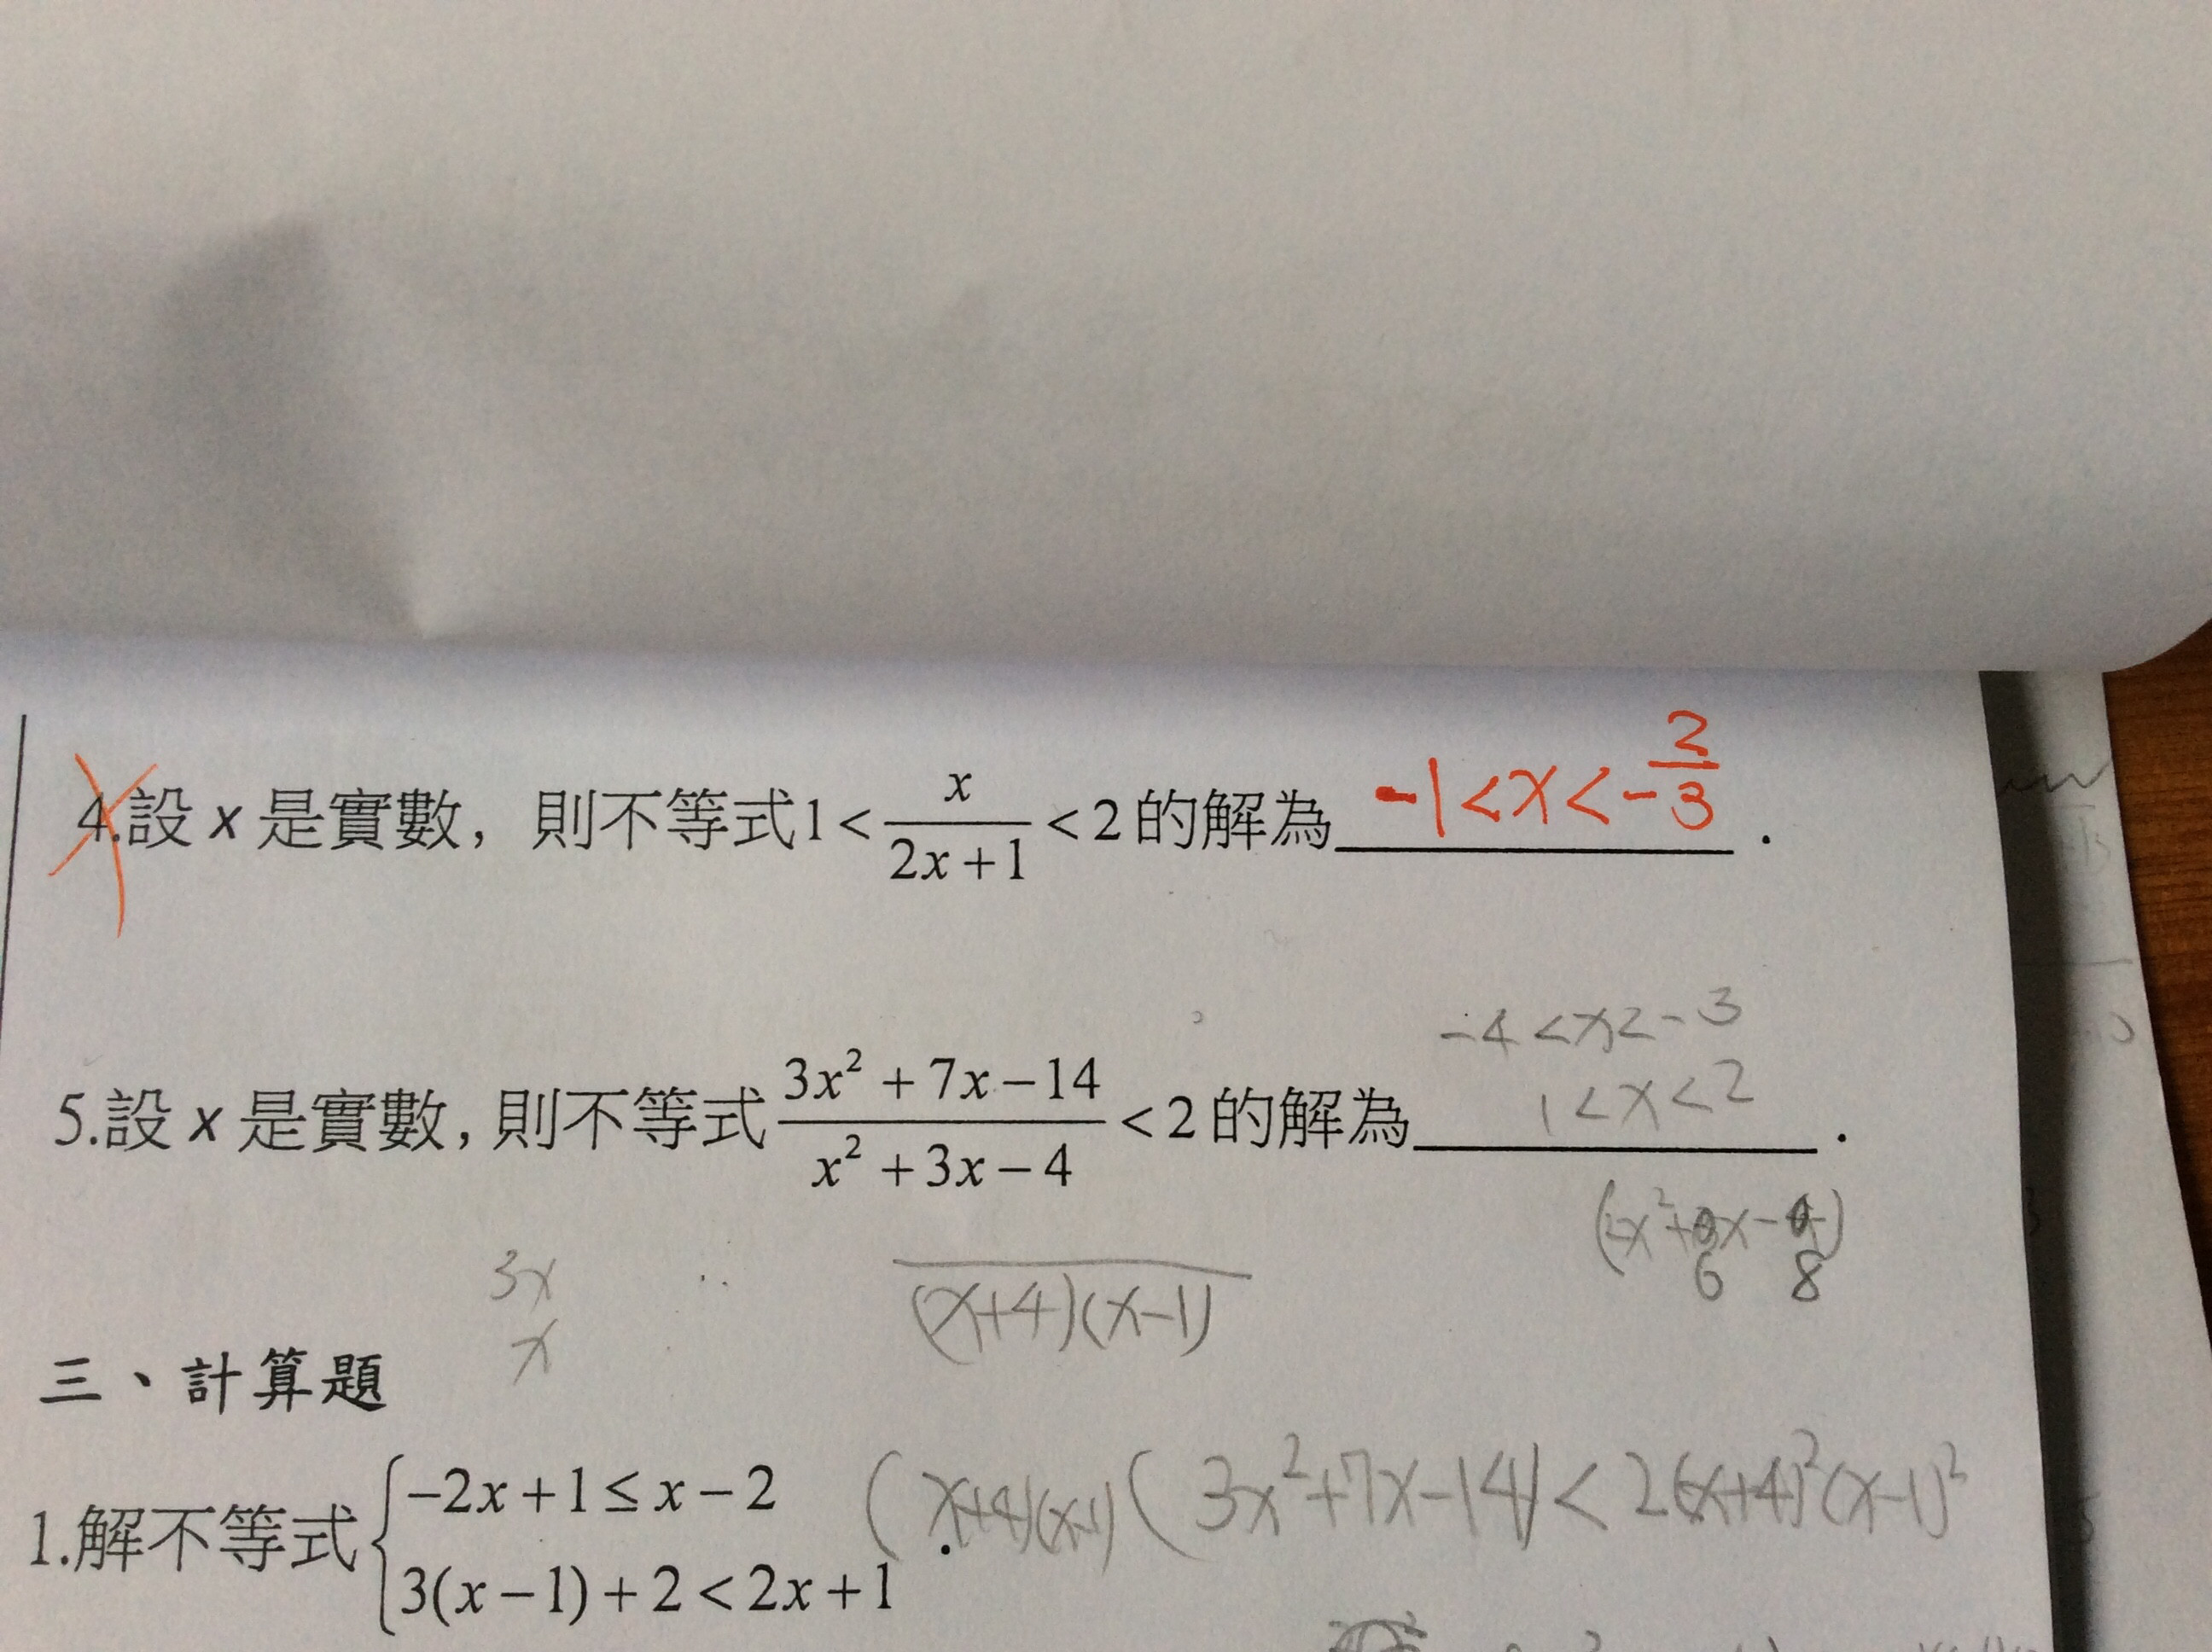 4.設 x 是實數，則不等式 1 < x/(2x+1) < 2 的解為 -1<x<-2/3 .
-4<x<-3
1<x<2
5.設 x 是實數，則不等式 (3x²+7x-14)/(x²+3x-4) < 2 的解為 .
6 8
3x
x
(x+4)(x-1)
三、計算題
1.解不等式 { -2x+1≤x-2
3(x-1)+2<2x+1 .
(x+4)(x-1)(3x²+7x-14)<2(x+4)²(x-1)²